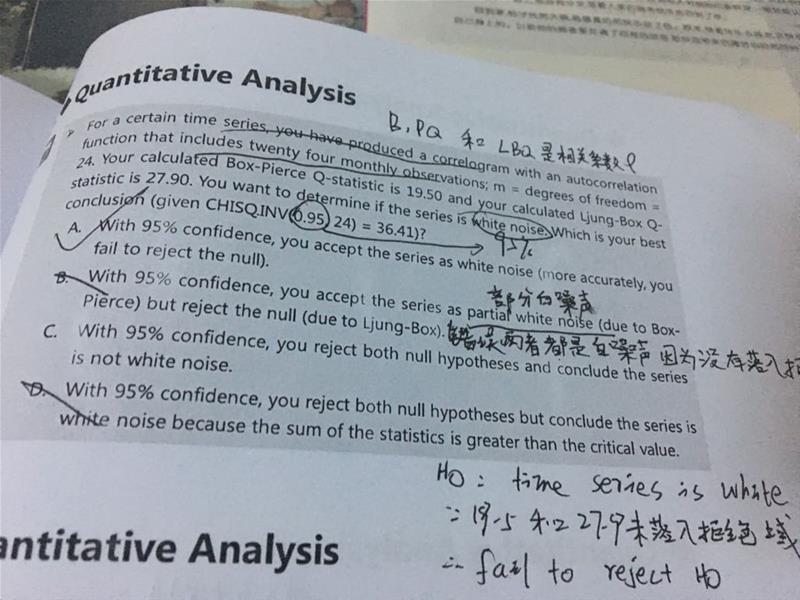 Quantitative Analysis
B.PQ 和 LBQ 是相关系数ρ
For a certain time series, you have produced a correlogram with an autocorrelation
function that includes twenty four monthly observations; m = degrees of freedom =
24. Your calculated Box-Pierce Q-statistic is 19.50 and your calculated Ljung-Box Q-
statistic is 27.90. You want to determine if the series is white noise. Which is your best
conclusion (given CHISQ.INV(0.95, 24) = 36.41)?
95%
A. With 95% confidence, you accept the series as white noise (more accurately, you
fail to reject the null).
部分白噪声
B. With 95% confidence, you accept the series as partial white noise (due to Box-
Pierce) but reject the null (due to Ljung-Box).
错误 两者都是白噪声 因为没有落入拒
C. With 95% confidence, you reject both null hypotheses and conclude the series
is not white noise.
D. With 95% confidence, you reject both null hypotheses but conclude the series is
white noise because the sum of the statistics is greater than the critical value.
H0: time series is white
∵ 19.5 和 27.9 未落入拒绝域
∴ fail to reject H0
antitative Analysis